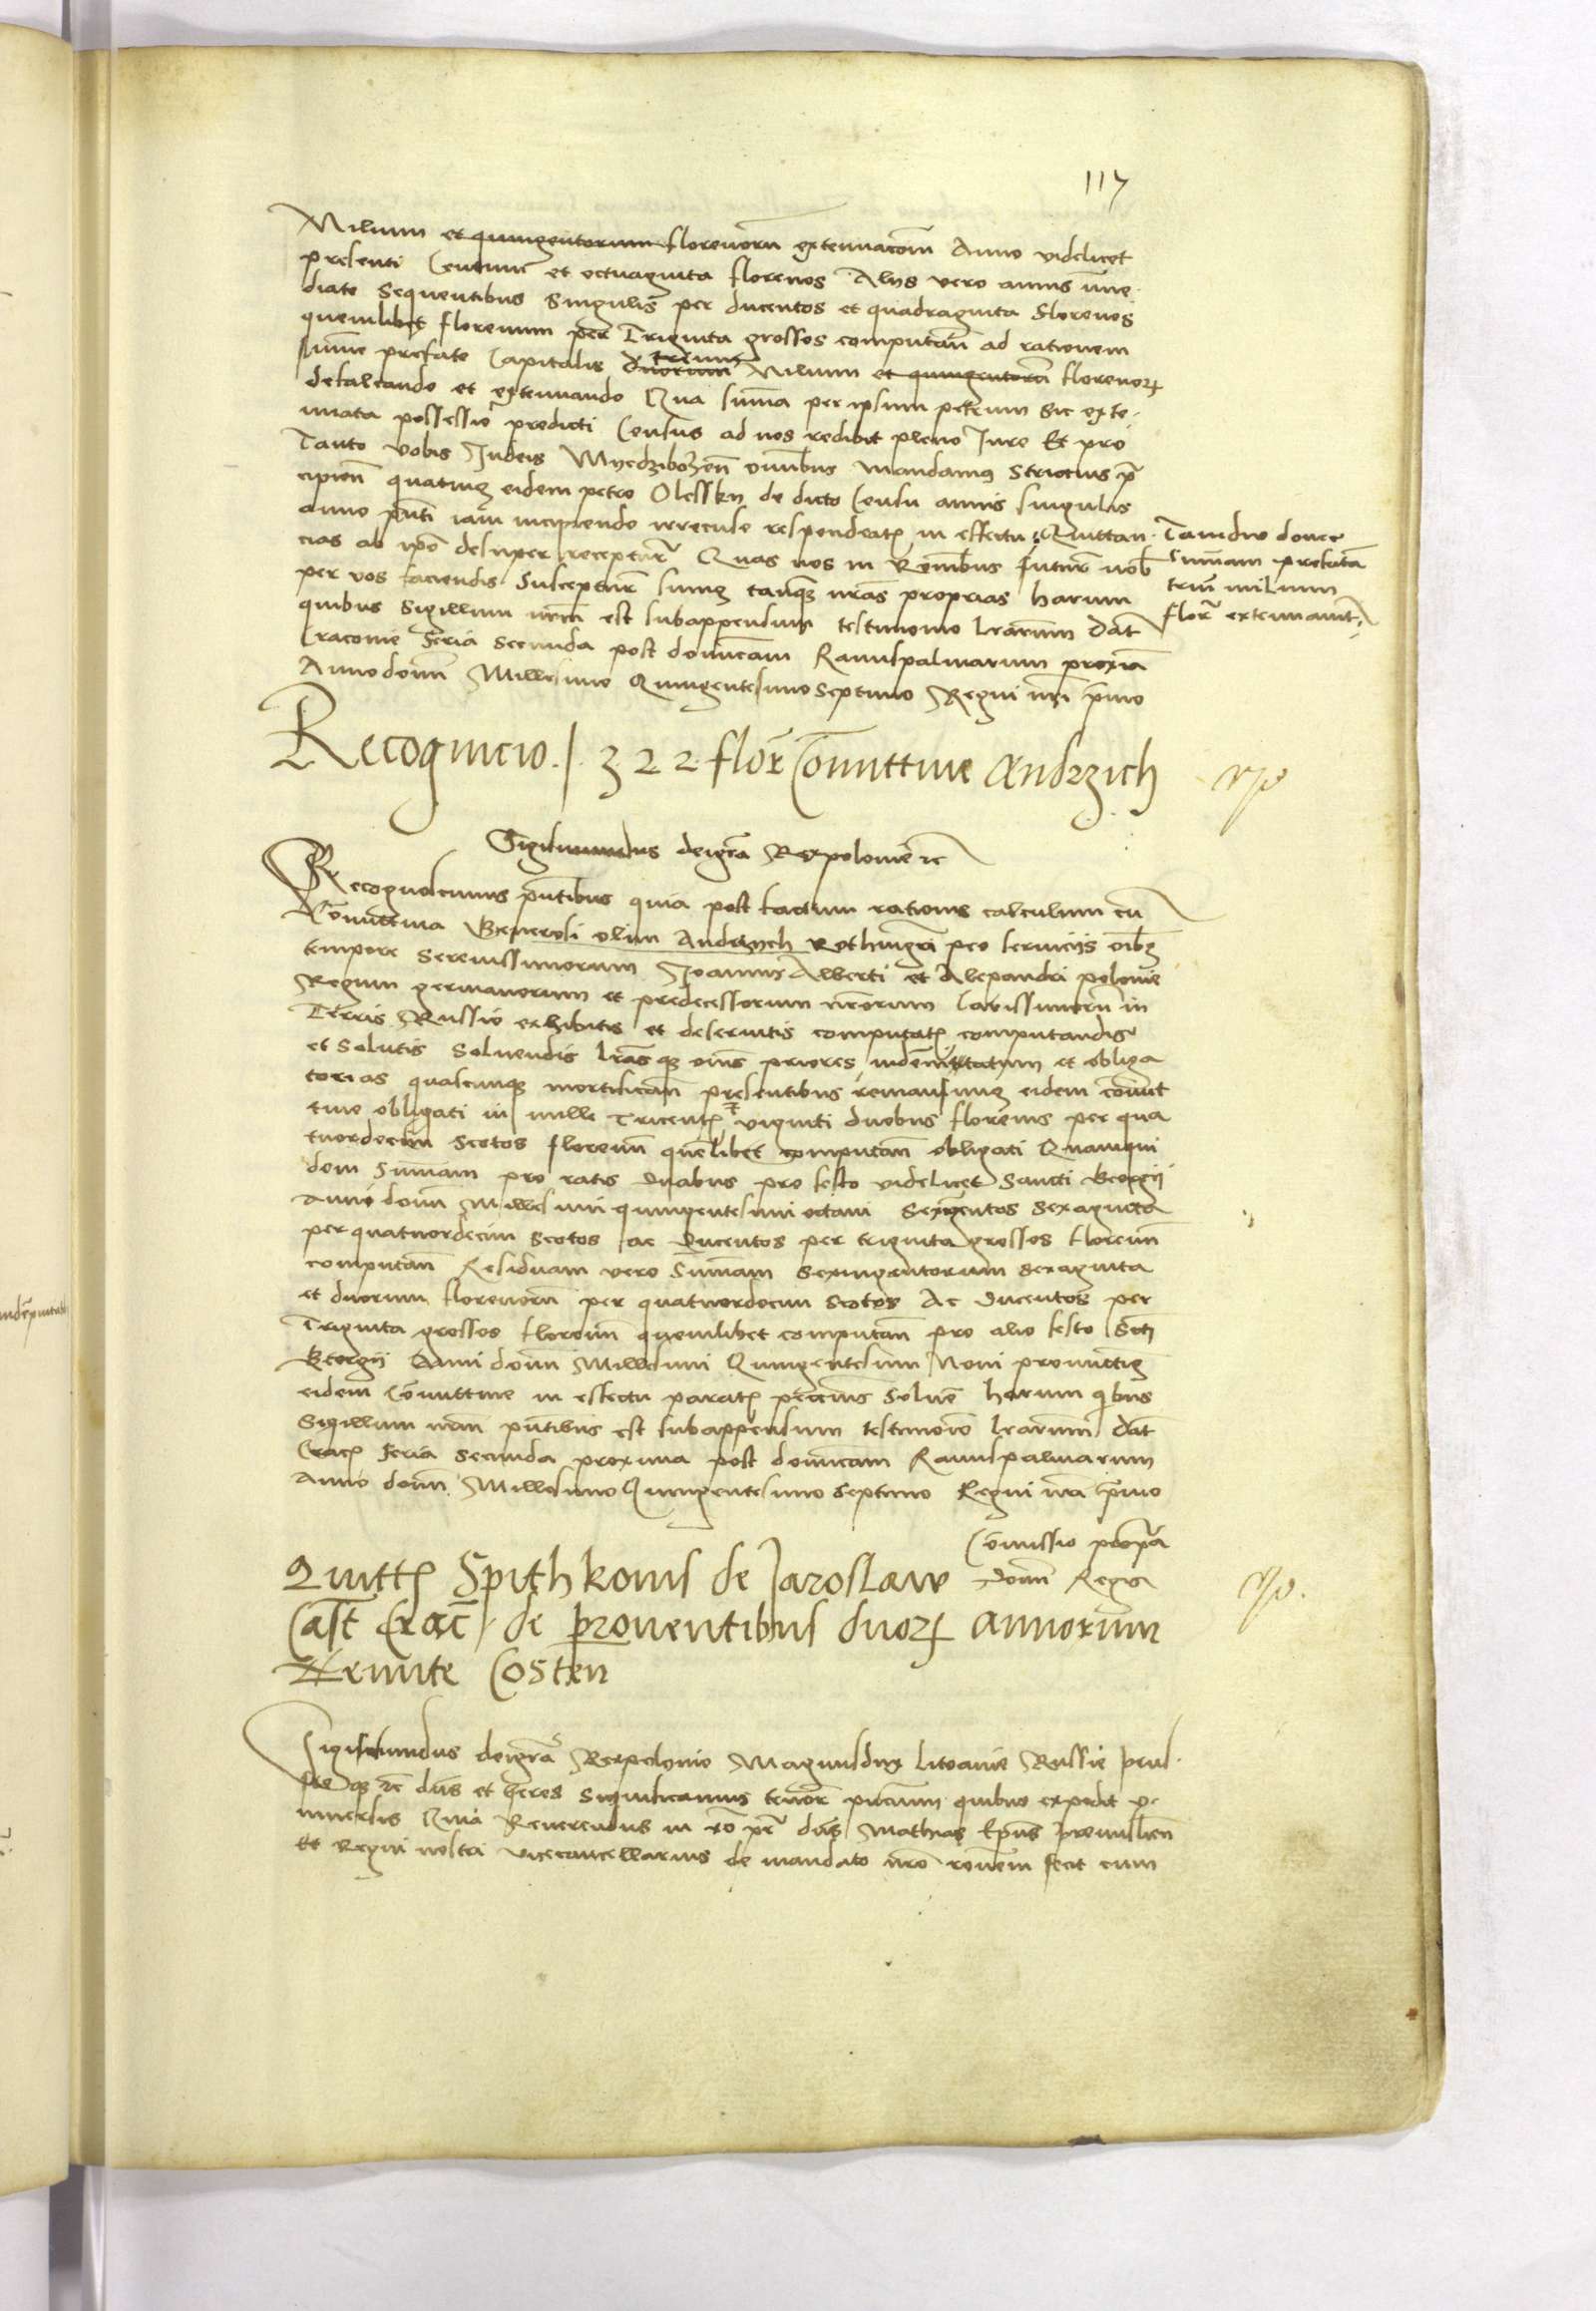 117
Milium et quingentorum florenorum extenuacōm Anno videlicet
presenti Centum et octuaginta florenos Alijs vero annis īme
diate sequentibus singulis per ducentos et quadraginta florenos
quemlibet florenum per Triginta grossos computān ad rationem
sume prefate Capitalis duorum trium Milium et quingentorū florenoꝝ
defalcando et extenuando Qua suma per ipsum petrum sic exte
nuata possessio predicti Census ad nos redibit pleno Jure Et pro
Tanto vobis Judeis Myedzibozēn omībus mandamus strictius p̄
cipien quatinus eidem petro Olesskn de dicto Censu annis singulis
anno pn̄ti iam incipiendo respondeatꝭ in effectu Quittan
Tamdiu donec
sumam prefatā
triū milium
flor̄ extenuaint
cias ab ipō desuper recepturi Quas nos in Rōnibus futur̄ nob̄
per vos faciendis suscepturi sumus tanqꝫ nrās proprias harum
quibus Sigillum nrm̄ est subappensum testimonio lrārum Dat̄
Cracovie feria secunda post dominicam Ramispalmarum proxiā
Anno domī Millesimo Quingentesimo septimo Regni nrī primo
Recognicio. 1322 flor̄ Comittive Andrzich
Sigismundus deigrā Rexpolonie ꝛc
Recognoscimus pn̄tibus quia post factum rationis calculum cū
Comittiva Generosi olim Andrzych Rothmgrī pro servicijs oībꝫ
tempore Serenissimorum Joannis Alberti et Alexandri polonie
Regum germanorum et predecessorum nrōrum Carissimorū in
Terris Russie exhibitis et deservitis computatꝭ computandis
et solutis solvendis lrāsqꝫ oīns priores indēnitatum et obliga
torias qualcunqꝫ mortificān presentibus remansimus eidem comit
tive obligati in mille Tricentꝭ et viginti duobus florenis per qua
tuordecim scotos florenū quēlibet computān obligati Quamqui
dem sumam pro ratis duabus pro festo videlicet Sancti Georgij
Anni domī Millesimi quingentesimi octavi Sexingentos Sexaginta
per quatuordecim scotos ac Ducentos per triginta grossos florenū
computān Residuam vero sumam sexingentorum sexaginta
et duorum florenorū per quatuordecim scotos Ac ducentos per
Triginta grossos florenū quemlibet computān pro alio festo Scti
Georgij Anni domī Millesimi Quingentesimi Noni promittimus
eidem Comittive in effectu paratꝭ pecunijs solvē harum qbus
Sigillum nrm̄ pn̄tibus est subappensum testimonio lrārum Dat̄
Cracꝭ feria secunda proxima post domīcam Ramispalmarum
Anno domī Millesimo Quingentesimo septimo Regni nrī primo
Comissio propria
domī Regis
Quittꝭ Spithkonis de Jaroslaw
Cast̄ Crac̄ de proventibus duoꝝ annorum
Costen
Sigismundus deigrā Rexpolonie Magnusdux Litwanie Russie prus
sieqꝫ ꝛc dn̄s et heres Significamus tenor̄ pn̄cium quibus expedit v
niversis Quia Reverendus in xō pr̄ dn̄s Mathias Epūs premislien
et Regni nostri vicecancellarius de mandato nrō ronem fecit cum